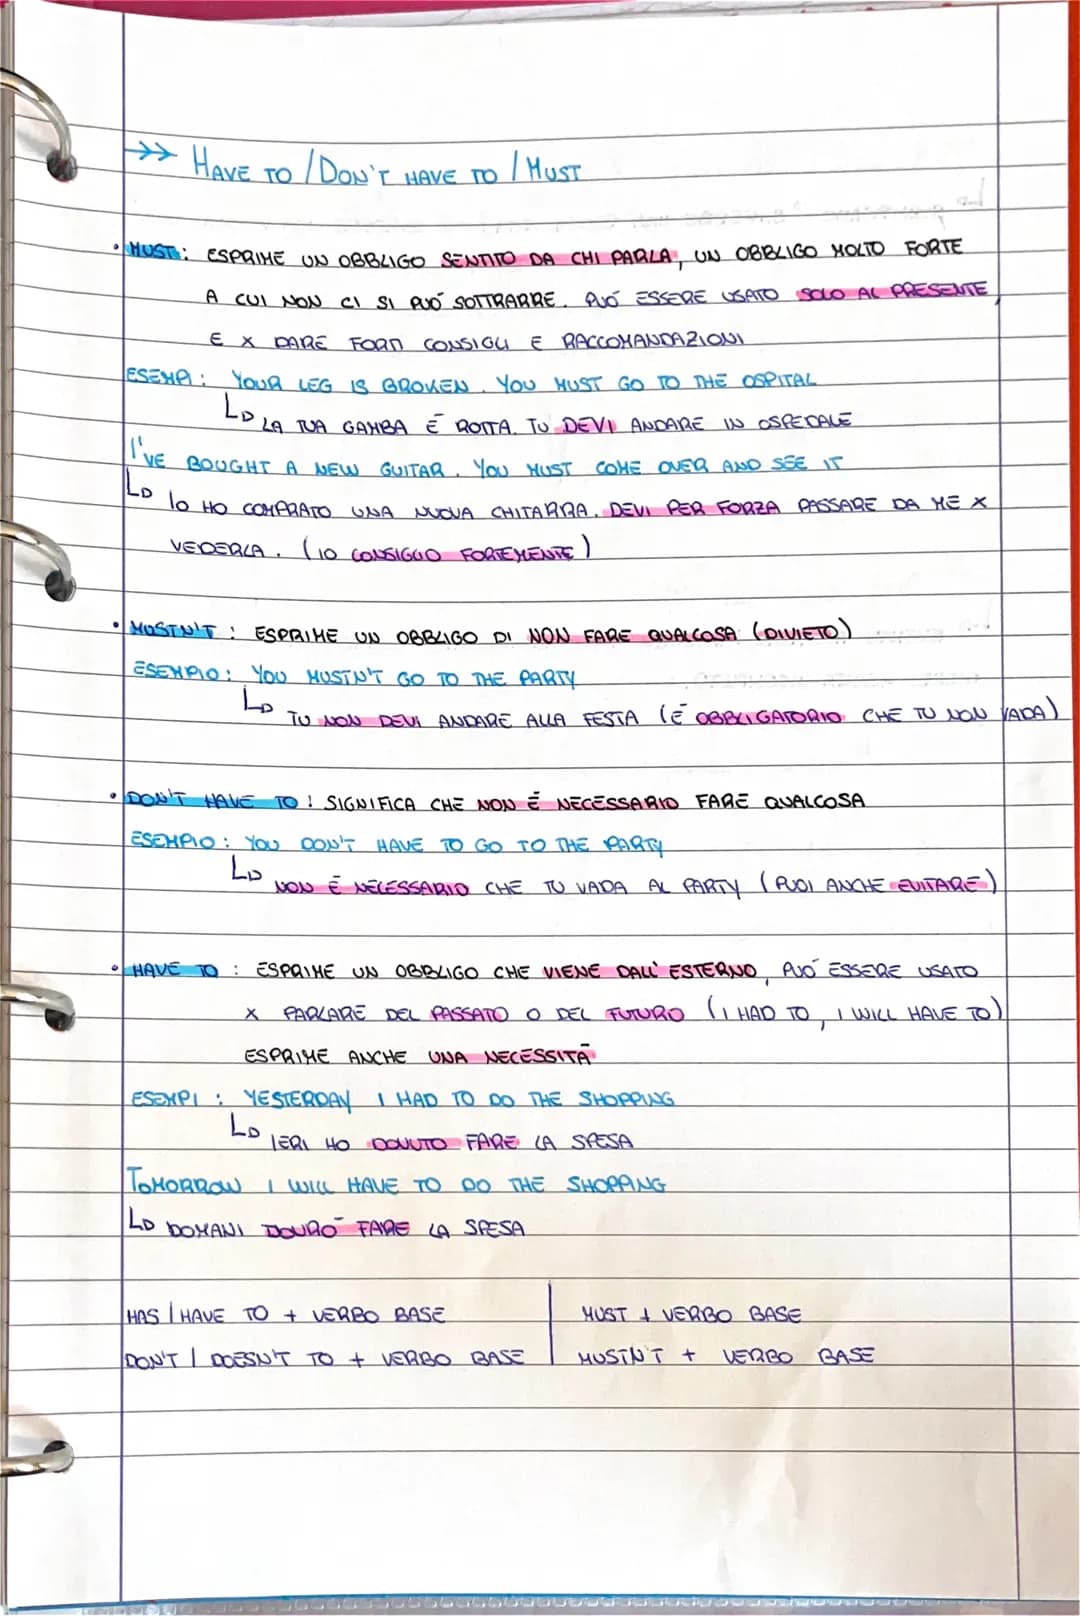 →» HAVE TO / DON'T HAVE TO / MUST
• MUST: ESPRIME UN OBBLIGO SENTITO DA CHI PARLA, UN OBBLIGO MOLTO FORTE
A CUI NON CI SI PUÓ SOTTRARRE. PUÓ ESSERE USATO SOLO AL PRESENTE
E X DARE FORTI CONSIGLI E RACCOMANDAZIONI
ESEMPI: YOUR LEG IS BROKEN. YOU MUST GO TO THE OSPITAL
LA TUA GAMBA É ROTTA. TU DEVI ANDARE IN OSPEDALE
I'VE BOUGHT A NEW GUITAR. YOU MUST COME OVER AND SEE IT
IO HO COMPRATO UNA NUOVA CHITARRA. DEVI PER FORZA PASSARE DA ME X
VEDERLA. (IO CONSIGLIO FORTEMENTE)
• MUSTN'T: ESPRIME UN OBBLIGO DI NON FARE QUALCOSA (DIVIETO)
ESEMPIO: YOU MUSTN'T GO TO THE PARTY
TU NON DEVI ANDARE ALLA FESTA (É OBBLIGATORIO CHE TU NON VADA)
• DON'T HAVE TO: SIGNIFICA CHE NON É NECESSARIO FARE QUALCOSA
ESEMPIO: YOU DON'T HAVE TO GO TO THE PARTY
NON É NECESSARIO CHE TU VADA AL PARTY (PUOI ANCHE EVITARE)
• HAVE TO: ESPRIME UN OBBLIGO CHE VIENE DALL'ESTERNO, PUÓ ESSERE USATO
X PARLARE DEL PASSATO O DEL FUTURO (I HAD TO, I WILL HAVE TO)
ESPRIME ANCHE UNA NECESSITÀ
ESEMPI: YESTERDAY I HAD TO DO THE SHOPPING
IERI HO DOVUTO FARE LA SPESA
TOMORROW I WILL HAVE TO DO THE SHOPPING
DOMANI DOVRÓ FARE LA SPESA
HAS / HAVE TO + VERBO BASE
DON'T / DOESN'T TO + VERBO BASE
MUST + VERBO BASE
MUSTN'T + VERBO BASE